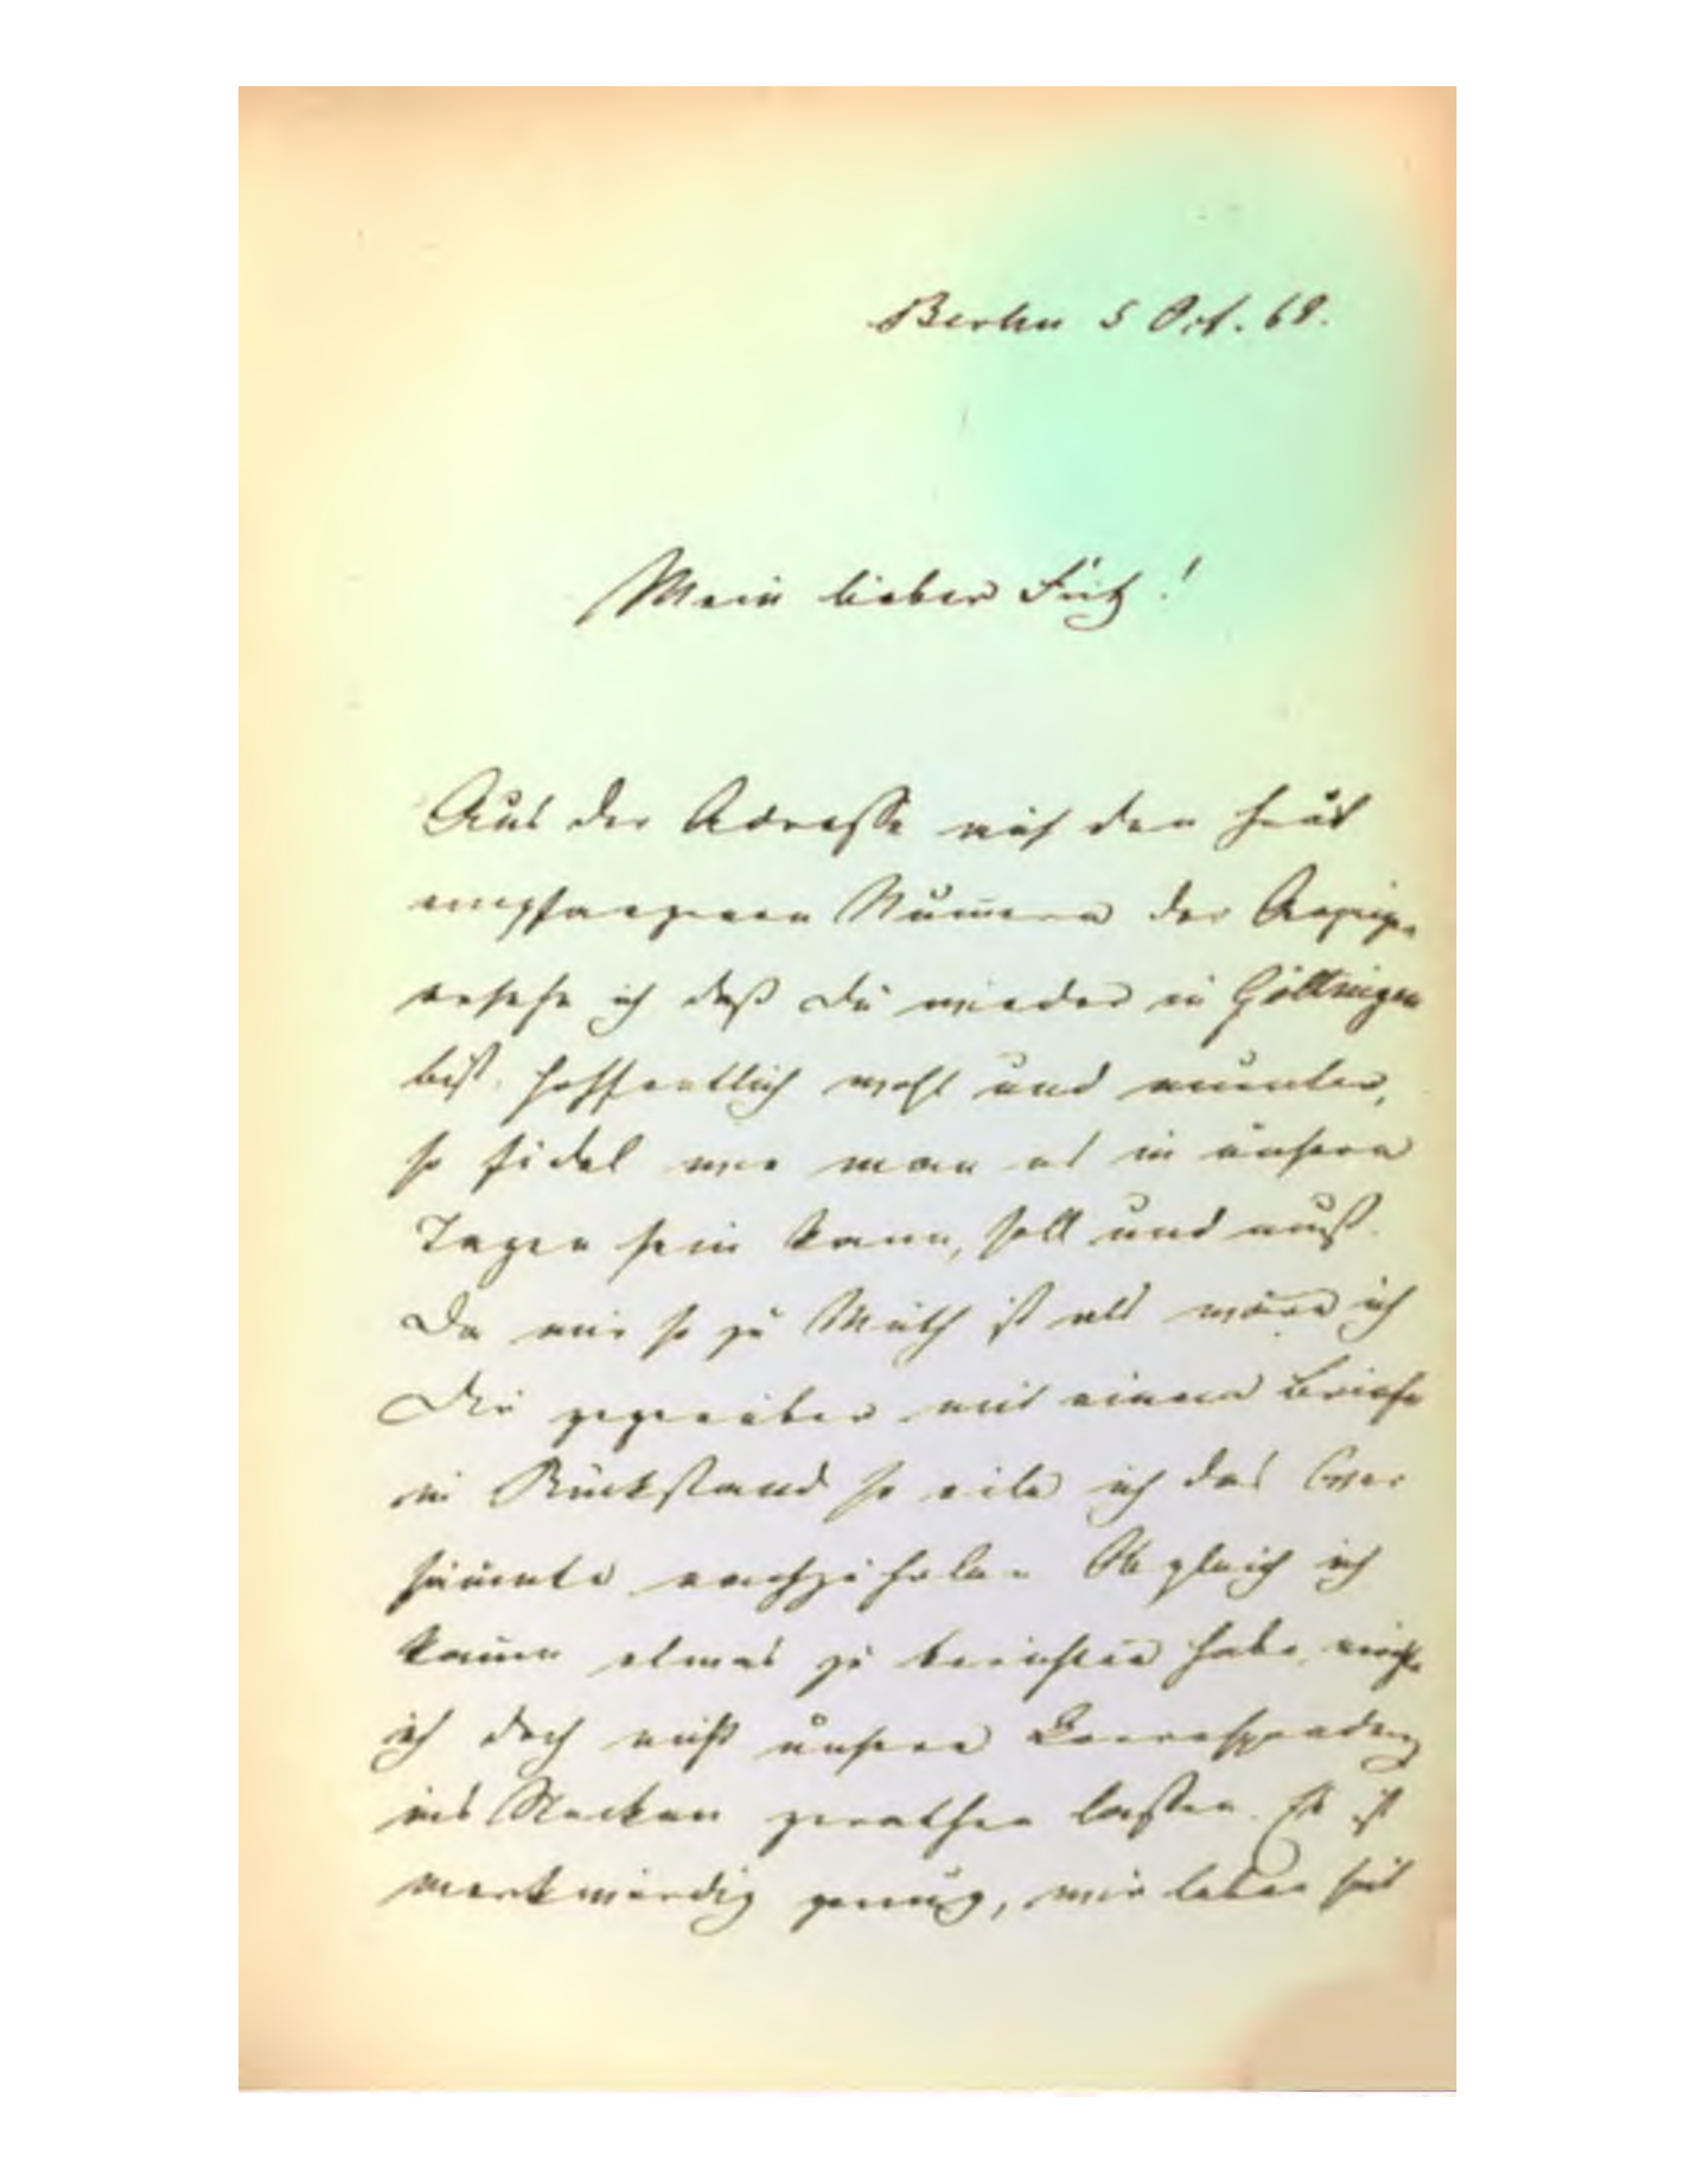 Berlin 5 Oct. 68.
Mein lieber Fritz!
Aus der Adresse auf den heut
empfangenen Numern der Anzeigen
ersehe ich daß Du wieder in Göttingen
bist, hoffentlich wohl und munter,
so fidel wie man es in unsern
Tagen sein kann, soll und muß.
Da mir so zu Muth ist als wäre ich
Dir gegenüber mit einem Briefe
im Rückstand so eile ich das Ver
säumte nachzuholen. Obgleich ich
kaum etwas zu berichten habe, möchte
ich doch nicht unsere Correspondenz
ins Stocken gerathen lassen. Es ist
merkwürdig genug, wir leben seit